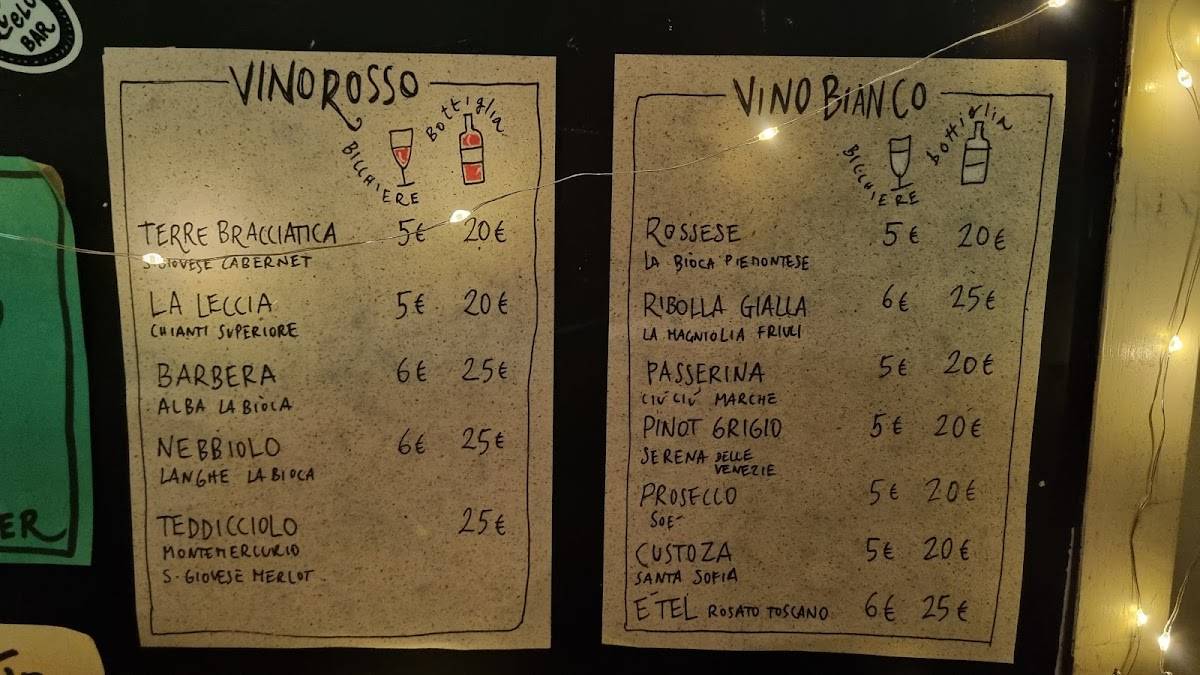 BAR
VINO ROSSO
BICCHIERE Bottiglia
TERRE BRACCIATICA 5€ 20€
S. GIOVESE CABERNET
LA LECCIA 5€ 20€
CHIANTI SUPERIORE
BARBERA 6€ 25€
ALBA LA BIÒCA
NEBBIOLO 6€ 25€
LANGHE LA BIOCA
TEDDICCIOLO 25€
MONTEMERCURIO
S. GIOVESE MERLOT
VINO BIANCO
BICCHIERE bottiglia
ROSSESE 5€ 20€
LA BIÒCA PIEMONTESE
RIBOLLA GIALLA 6€ 25€
LA MAGNIOLIA FRIULI
PASSERINA 5€ 20€
CIÙ CIÙ MARCHE
PINOT GRIGIO 5€ 20€
SERENA DELLE
VENEZIE
PROSECCO 5€ 20€
SOE
CUSTOZA 5€ 20€
SANTA SOFIA
E'TEL ROSATO TOSCANO 6€ 25€